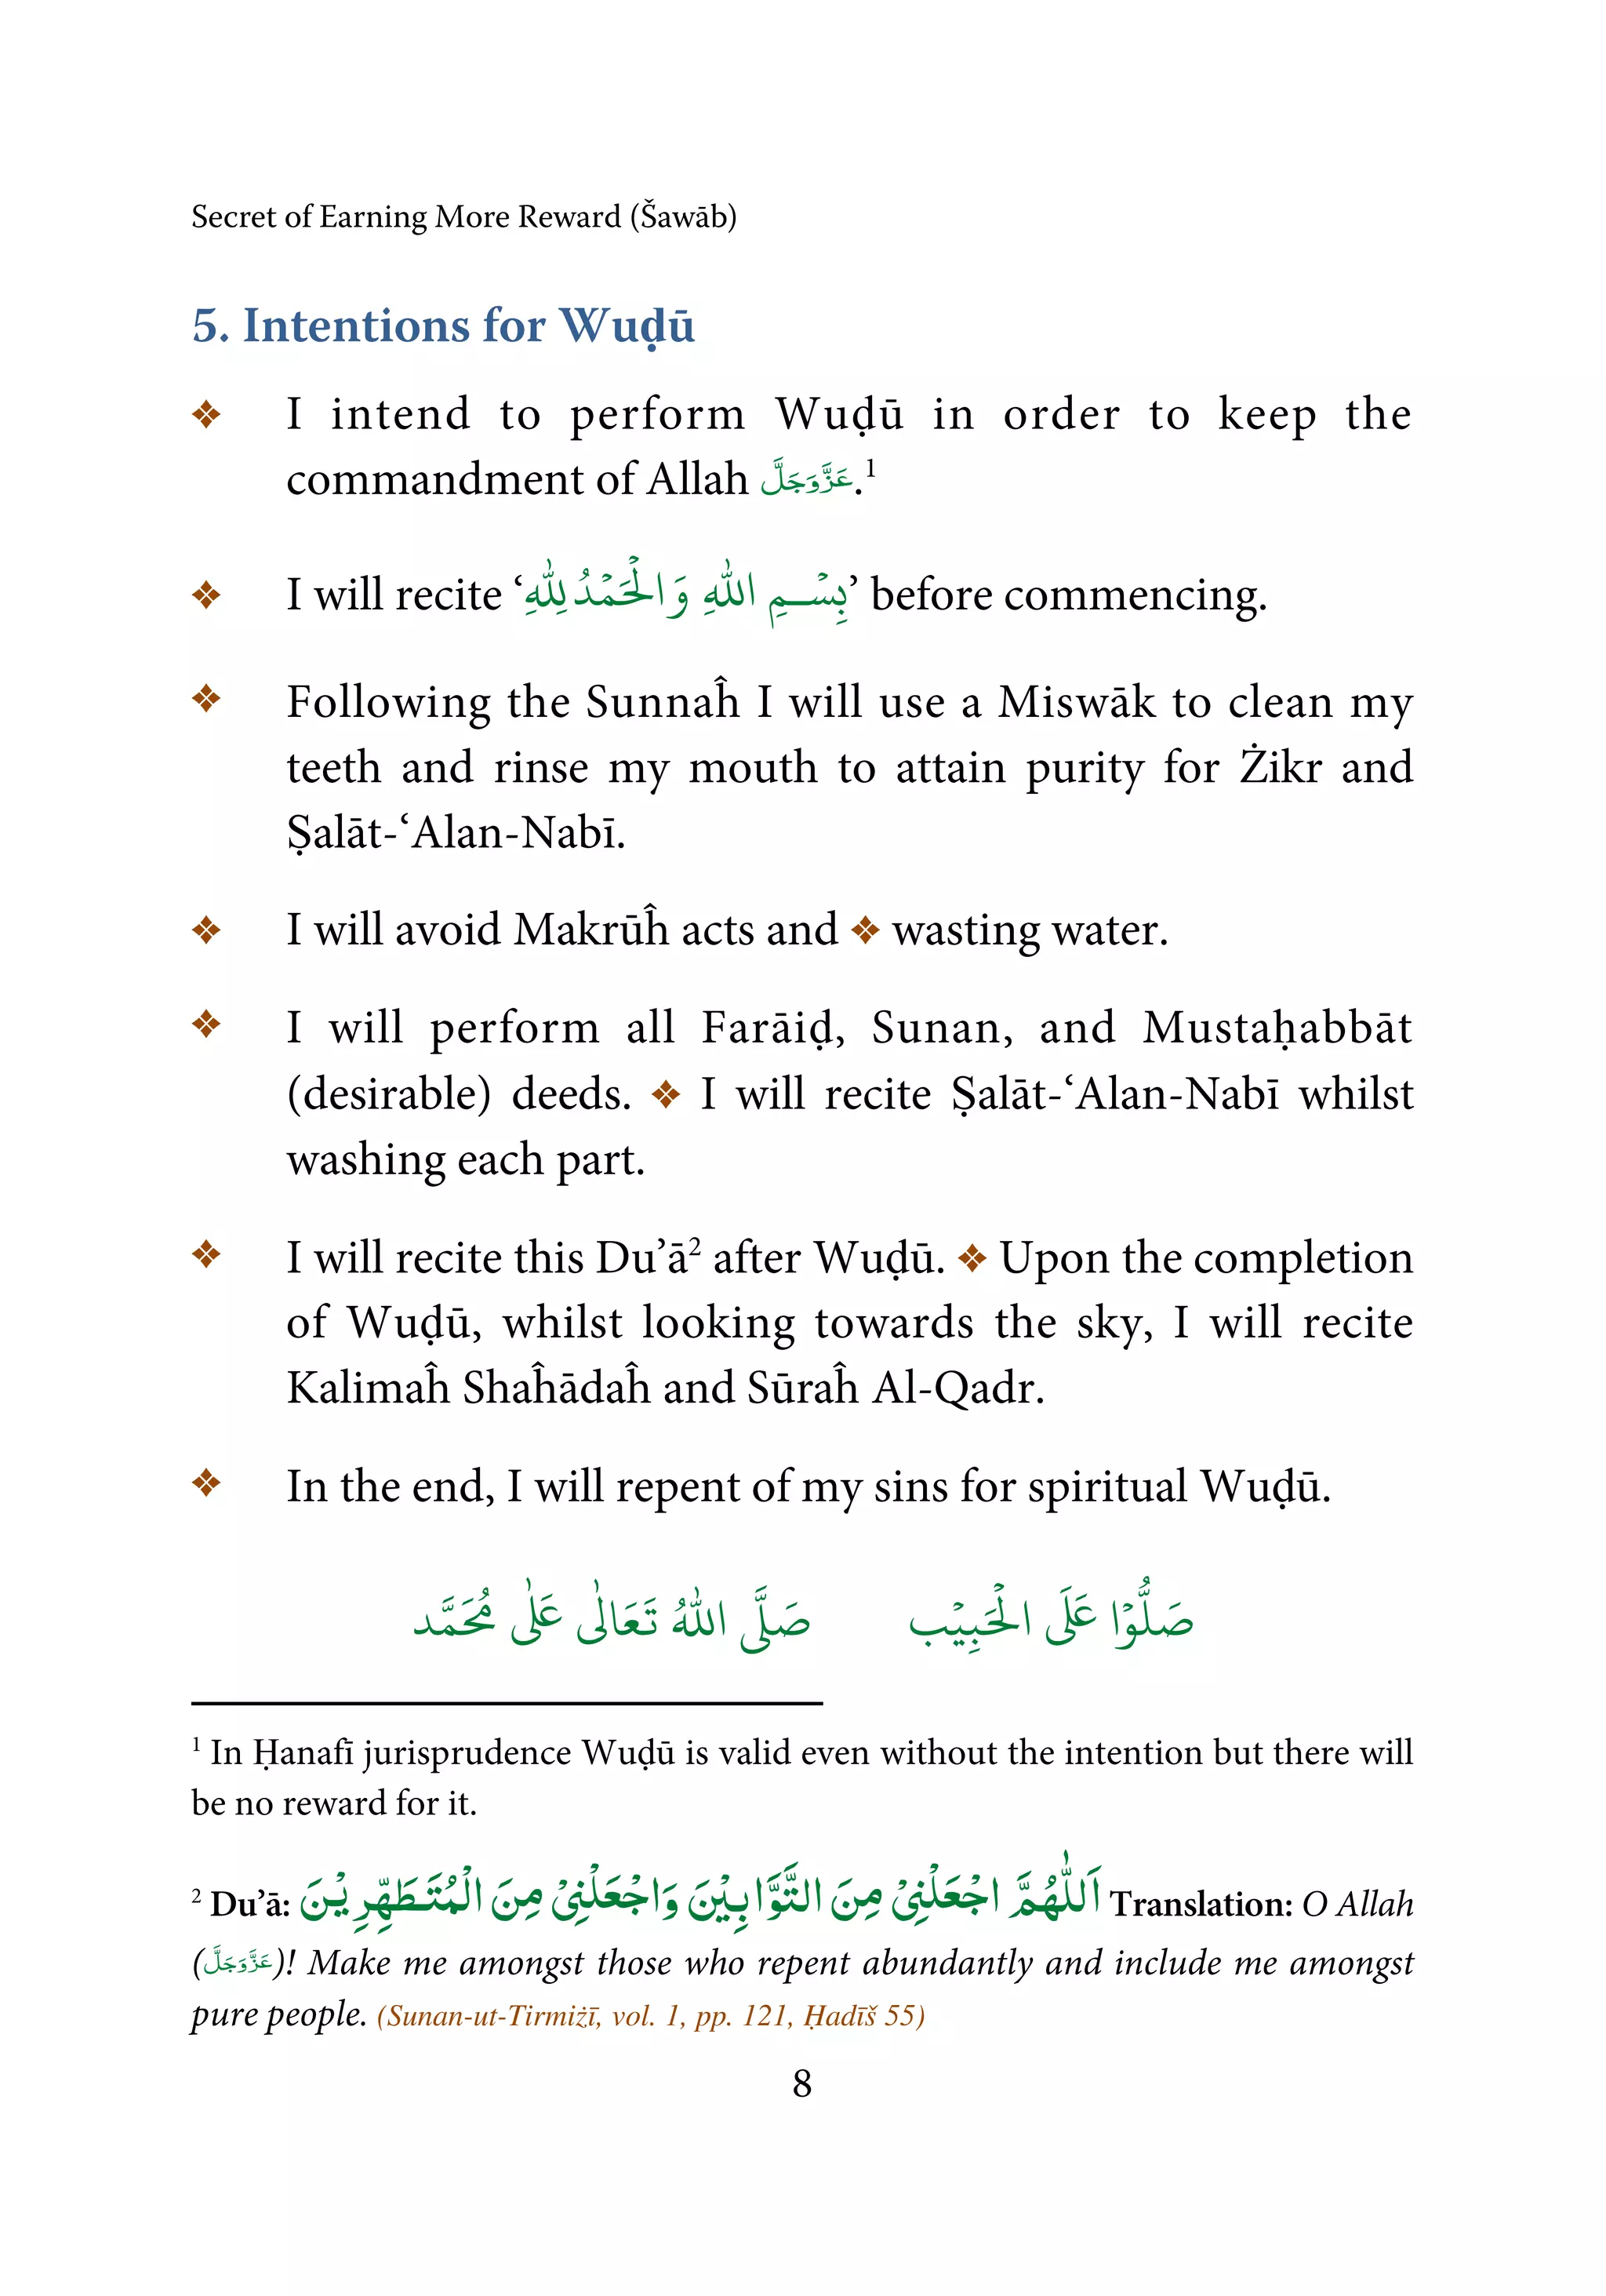 Secret of Earning More Reward (Šawāb)
5. Intentions for Wuḍū
❖ I intend to perform Wuḍū in order to keep the
commandment of Allah عَزَّوَجَلَّ.¹
❖ I will recite ‘بِسْمِ اللهِ وَ الْحَمْدُ لِلّٰهِ’ before commencing.
❖ Following the Sunnaĥ I will use a Miswāk to clean my
teeth and rinse my mouth to attain purity for Żikr and
Ṣalāt-‘Alan-Nabī.
❖ I will avoid Makrūĥ acts and ❖ wasting water.
❖ I will perform all Farāiḍ, Sunan, and Mustaḥabbāt
(desirable) deeds. ❖ I will recite Ṣalāt-‘Alan-Nabī whilst
washing each part.
❖ I will recite this Du’ā² after Wuḍū. ❖ Upon the completion
of Wuḍū, whilst looking towards the sky, I will recite
Kalimaĥ Shaĥādaĥ and Sūraĥ Al-Qadr.
❖ In the end, I will repent of my sins for spiritual Wuḍū.
صَلُّوْا عَلَى الْحَبِيْب صَلَّى اللهُ تَعَالٰى عَلٰى مُحَمَّد
¹ In Ḥanafī jurisprudence Wuḍū is valid even without the intention but there will
be no reward for it.
² Du’ā: اَللّٰهُمَّ اجْعَلْنِىْ مِنَ التَّوَّابِيْنَ وَاجْعَلْنِىْ مِنَ الْمُتَطَهِّرِيْنَ Translation: O Allah
(عَزَّوَجَلَّ)! Make me amongst those who repent abundantly and include me amongst
pure people. (Sunan-ut-Tirmiżī, vol. 1, pp. 121, Ḥadīš 55)
8